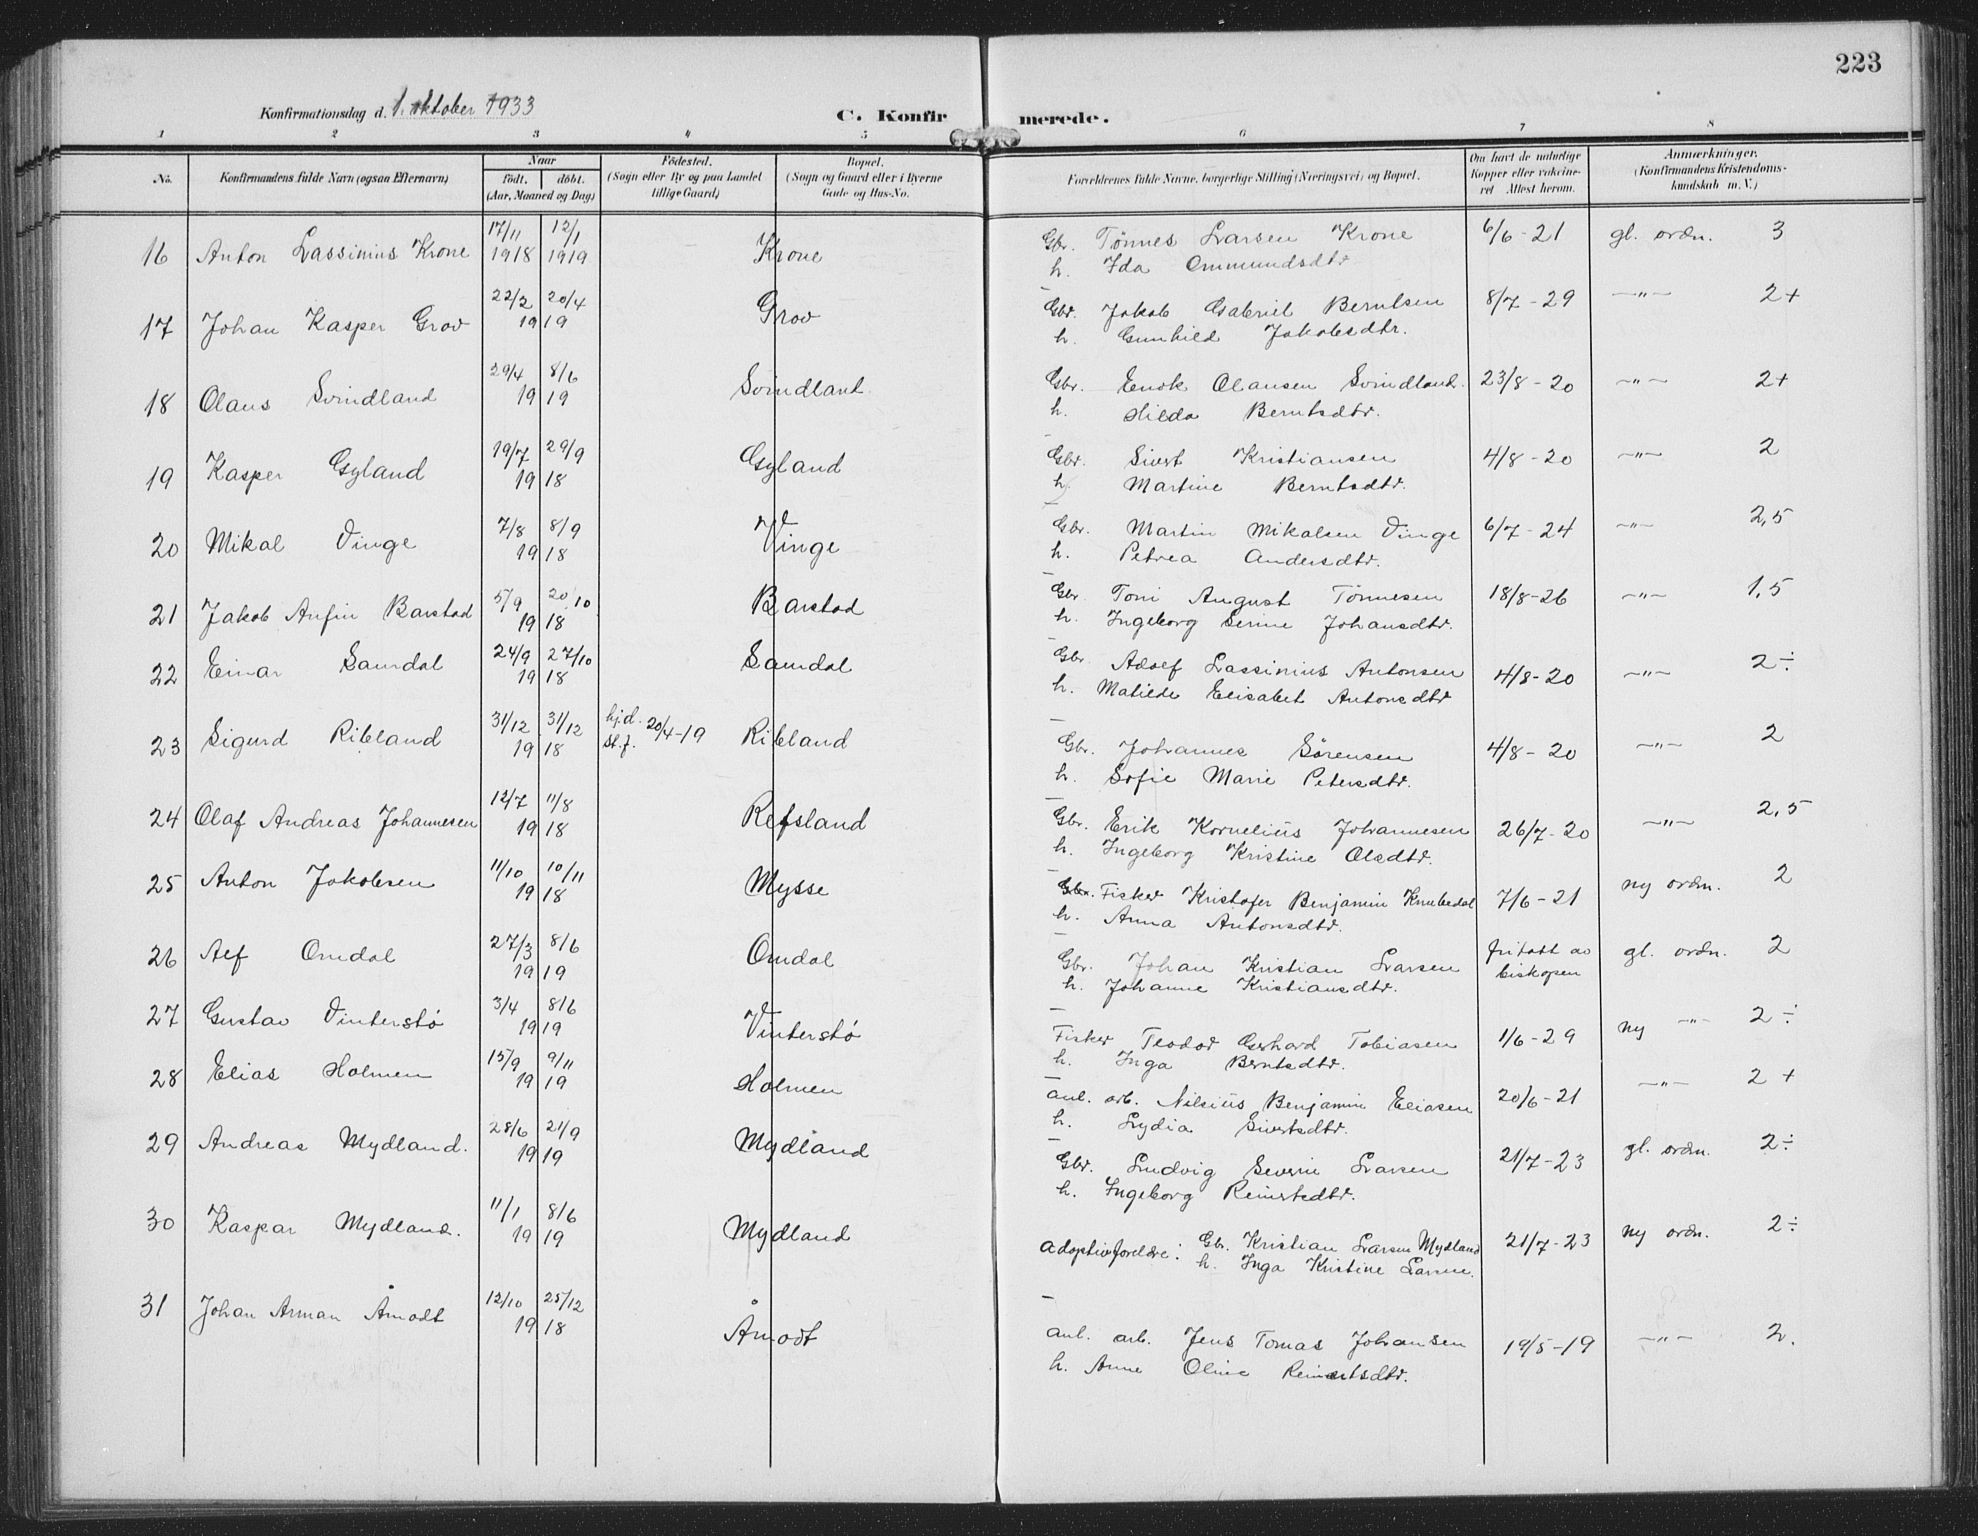 223
Konfirmationsdag d. 1. oktober 1933 C. Konfirmerede.
1 2 3 4 5 6 7 8
No. Konfirmandens fulde Navn (ogsaa Efternavn) Naar født. døbt. (Aar, Maaned og Dag) Fødested. (Sogn eller By og paa Landet tillige Gaard) Bopæl. (Sogn og Gaard eller i Byerne Gade og Hus-No. Forældrenes fulde Navne, borgerlige Stilling (Næringsvei) og Bopæl. Om havt de naturlige Kopper eller vakcineret. Attest herom. Anmærkninger. (Konfirmandens Kristendomskundskab m. V.)
16 Anton Lassinius Krone 17/11 1918 12/1 1919 Krone Gbr. Tönnes Larsen Krone 6/6-21 gl. ordn. 3
h. Ida Ommundsdtr
17 Johan Kasper Grov 22/2 20/4 1919 Grov Gbr. Jakob Gabriel Berntsen 8/7-29 —"— 2+
h. Gunhild Jakobsdtr.
18 Olaus Svindland 29/4 8/6 1919 Svindland Gbr. Enok Olausen Svindland. 23/8-20 —"— 2+
h. Hilda Berntsdtr.
19 Kasper Gyland 19/7 29/9 1918 Gyland Gbr. Sivert Kristiansen 4/8-20 —"— 2
h. Martine Berntsdtr.
20 Mikal Vinge 7/8 8/9 1918 Vinge Gbr. Martin Mikalsen Vinge 6/7-24 —"— 2,5
h. Petrea Andersdtr.
21 Jakob Anfin Barstad 5/9 20/10 1918 Barstad Gbr Toni August Tönnesen 18/8-26 —"— 1,5
h. Ingeborg Serine Johansdtr.
22 Einar Samdal 24/9 27/10 1918 Samdal Gbr Adolf Lassinius Antonsen 4/8-20 —"— 2÷
h. Matilde Elisabet Antonsdtr
23 Sigurd Ribland 31/12 31/12 1918 hj.d. st.f. 20/4-19 Ribland Gbr. Johannes Sörensen 4/8-20 —"— 2
h. Sofie Marie Petersdtr.
24 Olaf Andreas Johannesen 12/7 11/8 1918 Refsland Gbr. Erik Kornelius Johannesen 26/7-20 —"— 2,5
h. Ingeborg Kristine Olsdtr.
25 Anton Jakobsen 11/10 10/11 1918 Mysse Gbr. Fisker Kristofer Benjamin Knubedal 7/6-21 ny ordn. 2
h. Anna Antonsdtr.
26 Alf Omdal 27/3 8/6 1919 Omdal Gbr. Johan Kristian Larsen fritatt av biskopen gl. ordn. 2
h. Johanne Kristiansdtr.
27 Gustav Vinterstø 3/4 8/6 1919 Vinterstø Fisker Teodor Gerhard Tobiasen 1/6-29 ny —"— 2÷
h. Inga Berntsdtr.
28 Elias Holmen 15/9 9/11 1919 Holmen anl. arb. Nilsius Benjamin Eliasen 20/6-21 —"— 2+
h. Lydia Sivertsdtr.
29 Andreas Mydland. 28/6 21/9 1919 Mydland Gbr. Ludvig Severin Larsen 21/7-23 gl. ordn. 2÷
h. Ingeborg Reinertsdtr.
30 Kaspar Mydland. 11/1 8/6 1919 Mydland Adoptivforeldre: Gbr. Kristian Larsen Mydland 21/7-23 ny ordn. 2÷
h. Inga Kristine Larsen.
31 Johan Arman Åmodt 12/10 25/12 1918 Åmodt anl. arb. Jens Tomas Johansen 19/5-19 —"— 2.
h. Anne Oline Reinertsdtr.